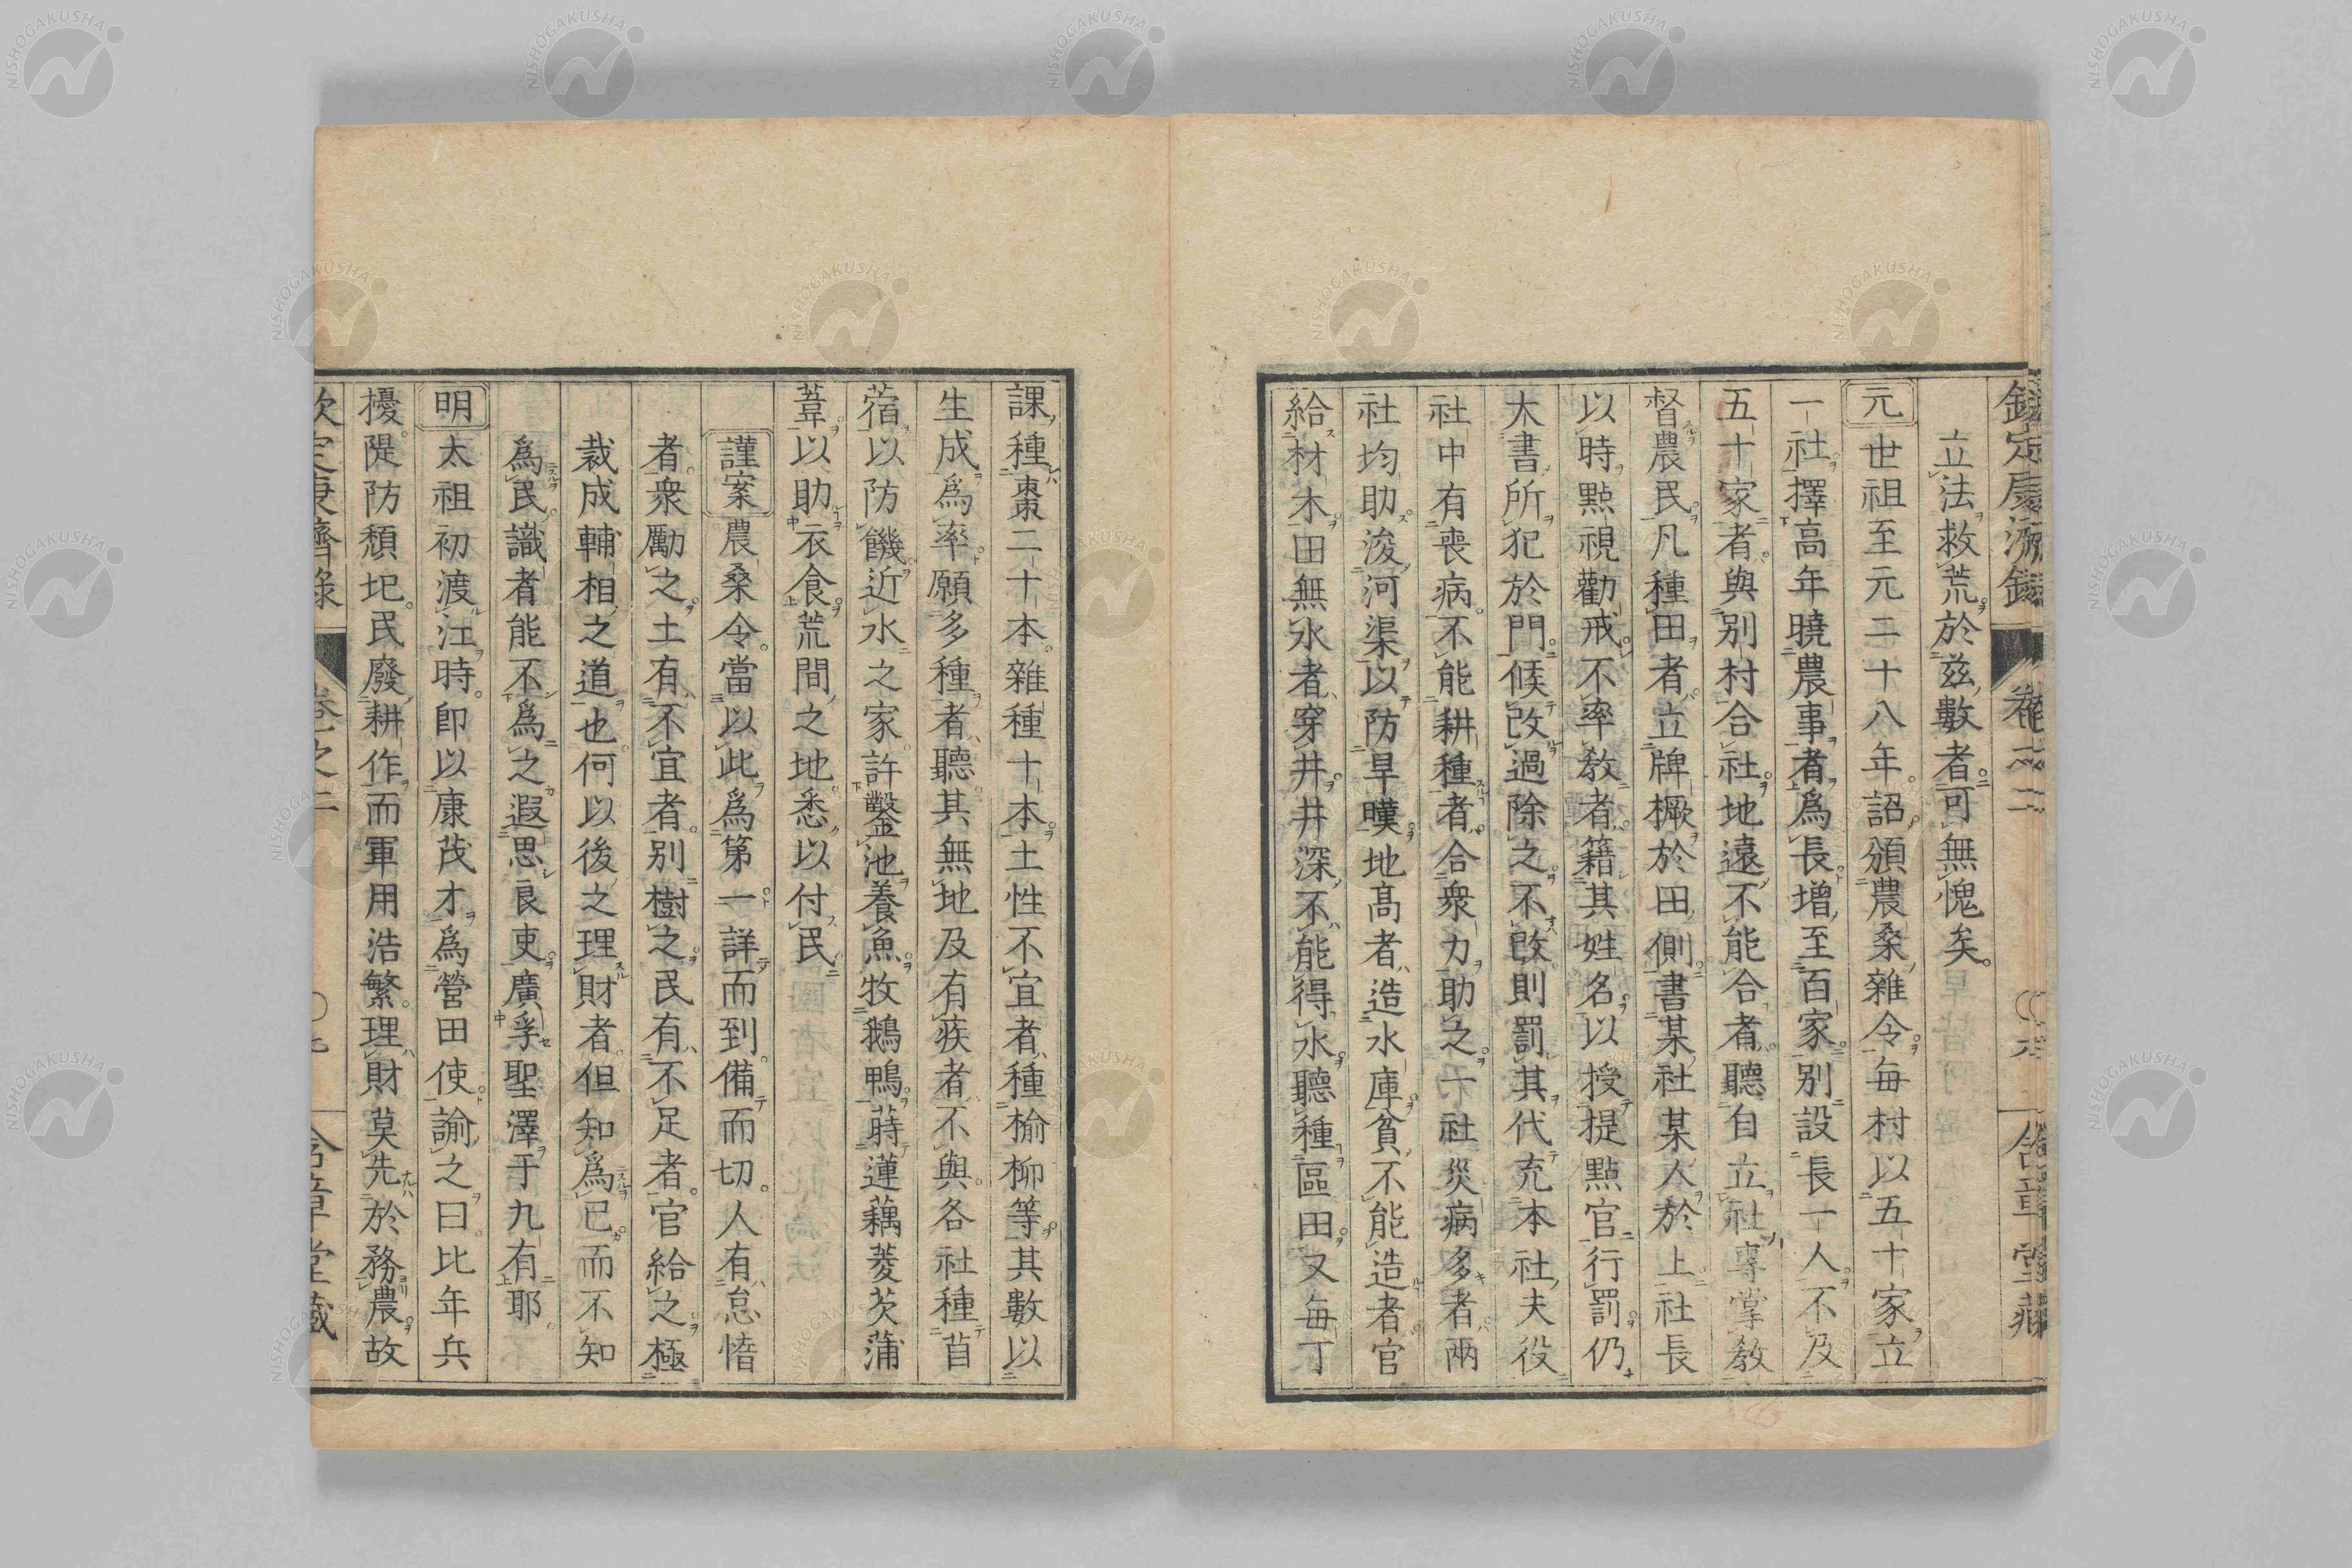 欽定康濟錄 卷之二 ○六 含章堂藏
立法救荒於茲數者可無愧矣。
元 世祖至元二十八年。詔頒農桑雜令。每村以五十家立
一社擇高年曉農事者爲長增至百家別設長一人不及
五十家者與別村合社地遠不能合者聽自立社專掌教
督農民凡種田者立牌橛於田側書某社某人於上社長
以時點視勸戒不率教者籍其姓名以授提點官行罰仍
大書所犯於門候改過除之不改則罰其代充本社夫役
社中有喪病不能耕種者合衆力助之一社災病多者兩
社均助浚河渠以防旱暵地高者造水庫貧不能造者官
給材木田無水者穿井井深不能得水聽種區田又每丁
課種棗二十本雜種十本土性不宜者種榆柳等其數以
生成爲率願多種者聽其無地及有疾者不與各社種苜
蓿以防饑近水之家許鑿池養魚牧鵝鴨蒔蓮藕菱芡蒲
葦以助衣食荒間之地悉以付民
謹案 農桑令。當以此爲第一詳而到。備而切。人有怠惰
者。衆勵之。土有不宜者。別樹之。民有不足者。官給之極
裁成輔相之道也。何以後之理財者。但知爲己而不知
爲民。識者能不爲之遐思良吏廣孚聖澤于九有耶。
明 太祖初渡江時。卽以康茂才爲營田使諭之曰。比年兵
擾。隄防頽圮。民廢耕作而軍用浩繁。理財莫先於務農故
欽定康濟錄 卷之二 ○七 含章堂藏